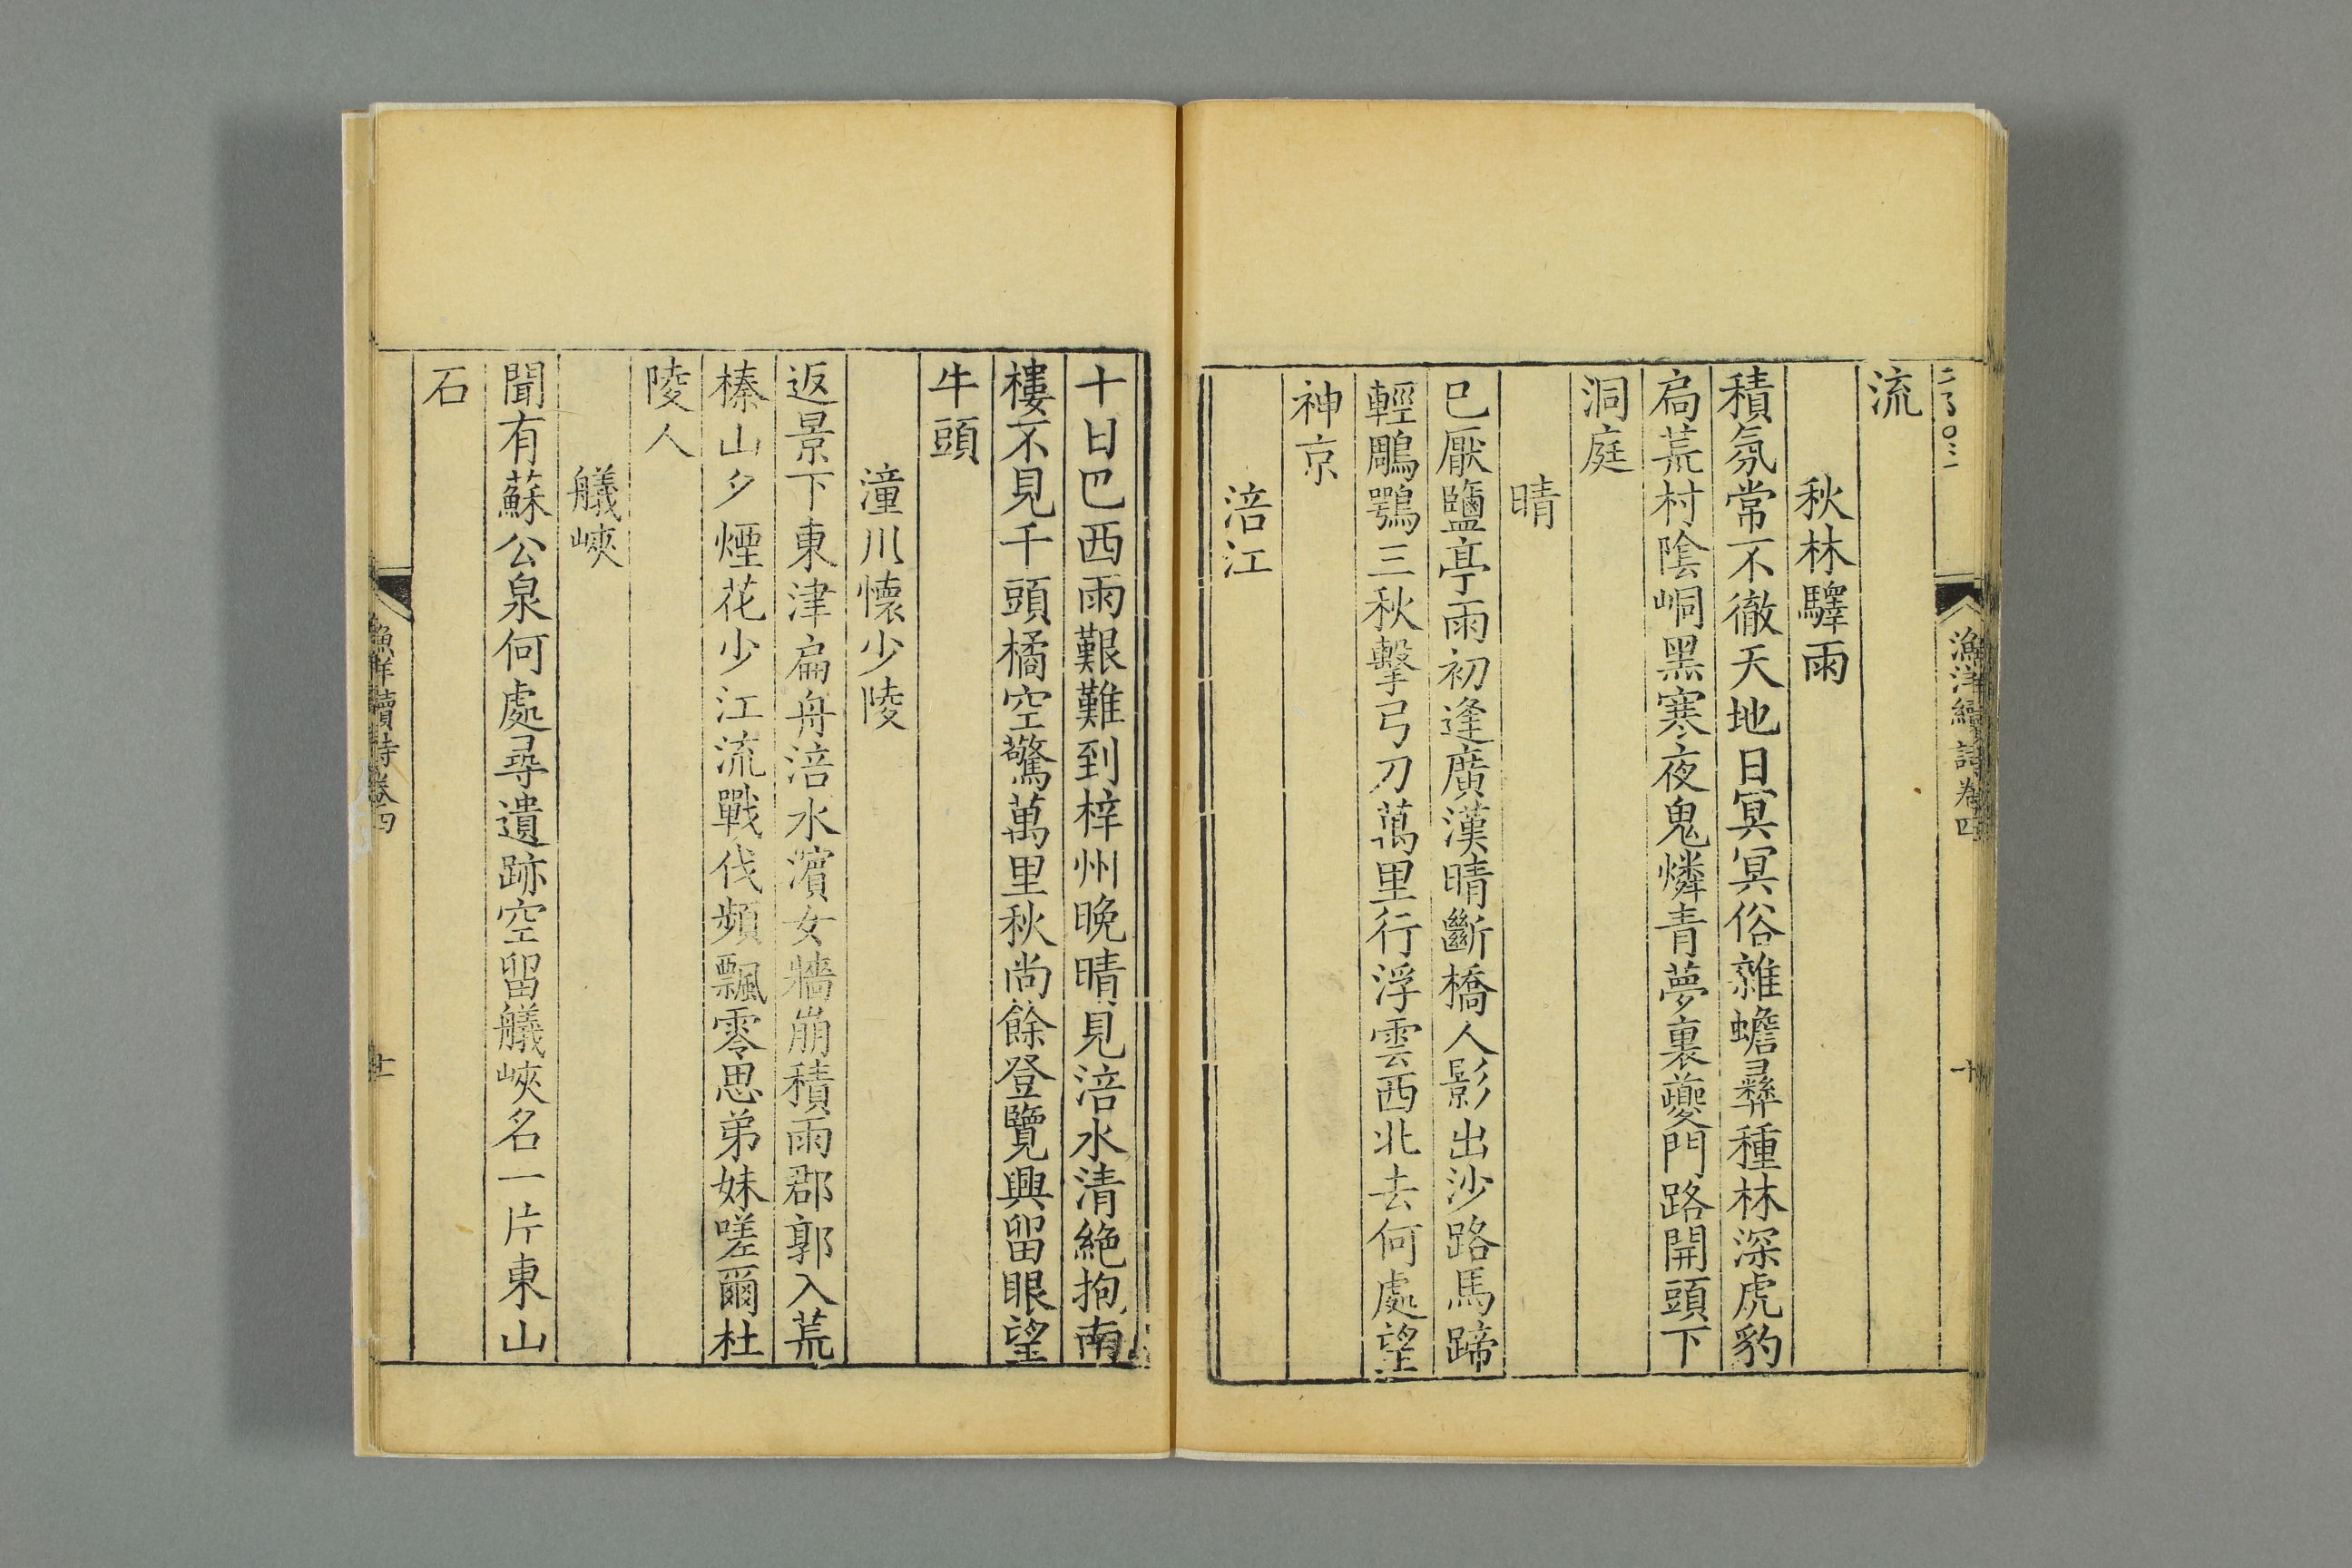 漁洋續詩卷四
十
流
秋林驛雨
積氛常不徹天地日冥冥俗雜蟾彞種林深虎豹
扃荒村陰峒黑寒夜鬼燐青夢裏夔門路開頭下
洞庭
晴
巳厭鹽亭雨初逢廣漢晴斷橋人影出沙路馬蹄
輕鵰鶚三秋擊弓刀萬里行浮雲西北去何處望
神京
涪江
十日巴西雨艱難到梓州晚晴見涪水清絶抱南
樓不見千頭橘空驚萬里秋尚餘登覽興留眼望
牛頭
潼川懷少陵
返景下東津扁舟涪水濱女牆崩積雨郡郭入荒
榛山夕煙花少江流戰伐頻飄零思弟妹嗟爾杜
陵人
艤峽
聞有蘇公泉何處尋遺跡空留艤峽名一片東山
石
漁洋續詩卷四
十一